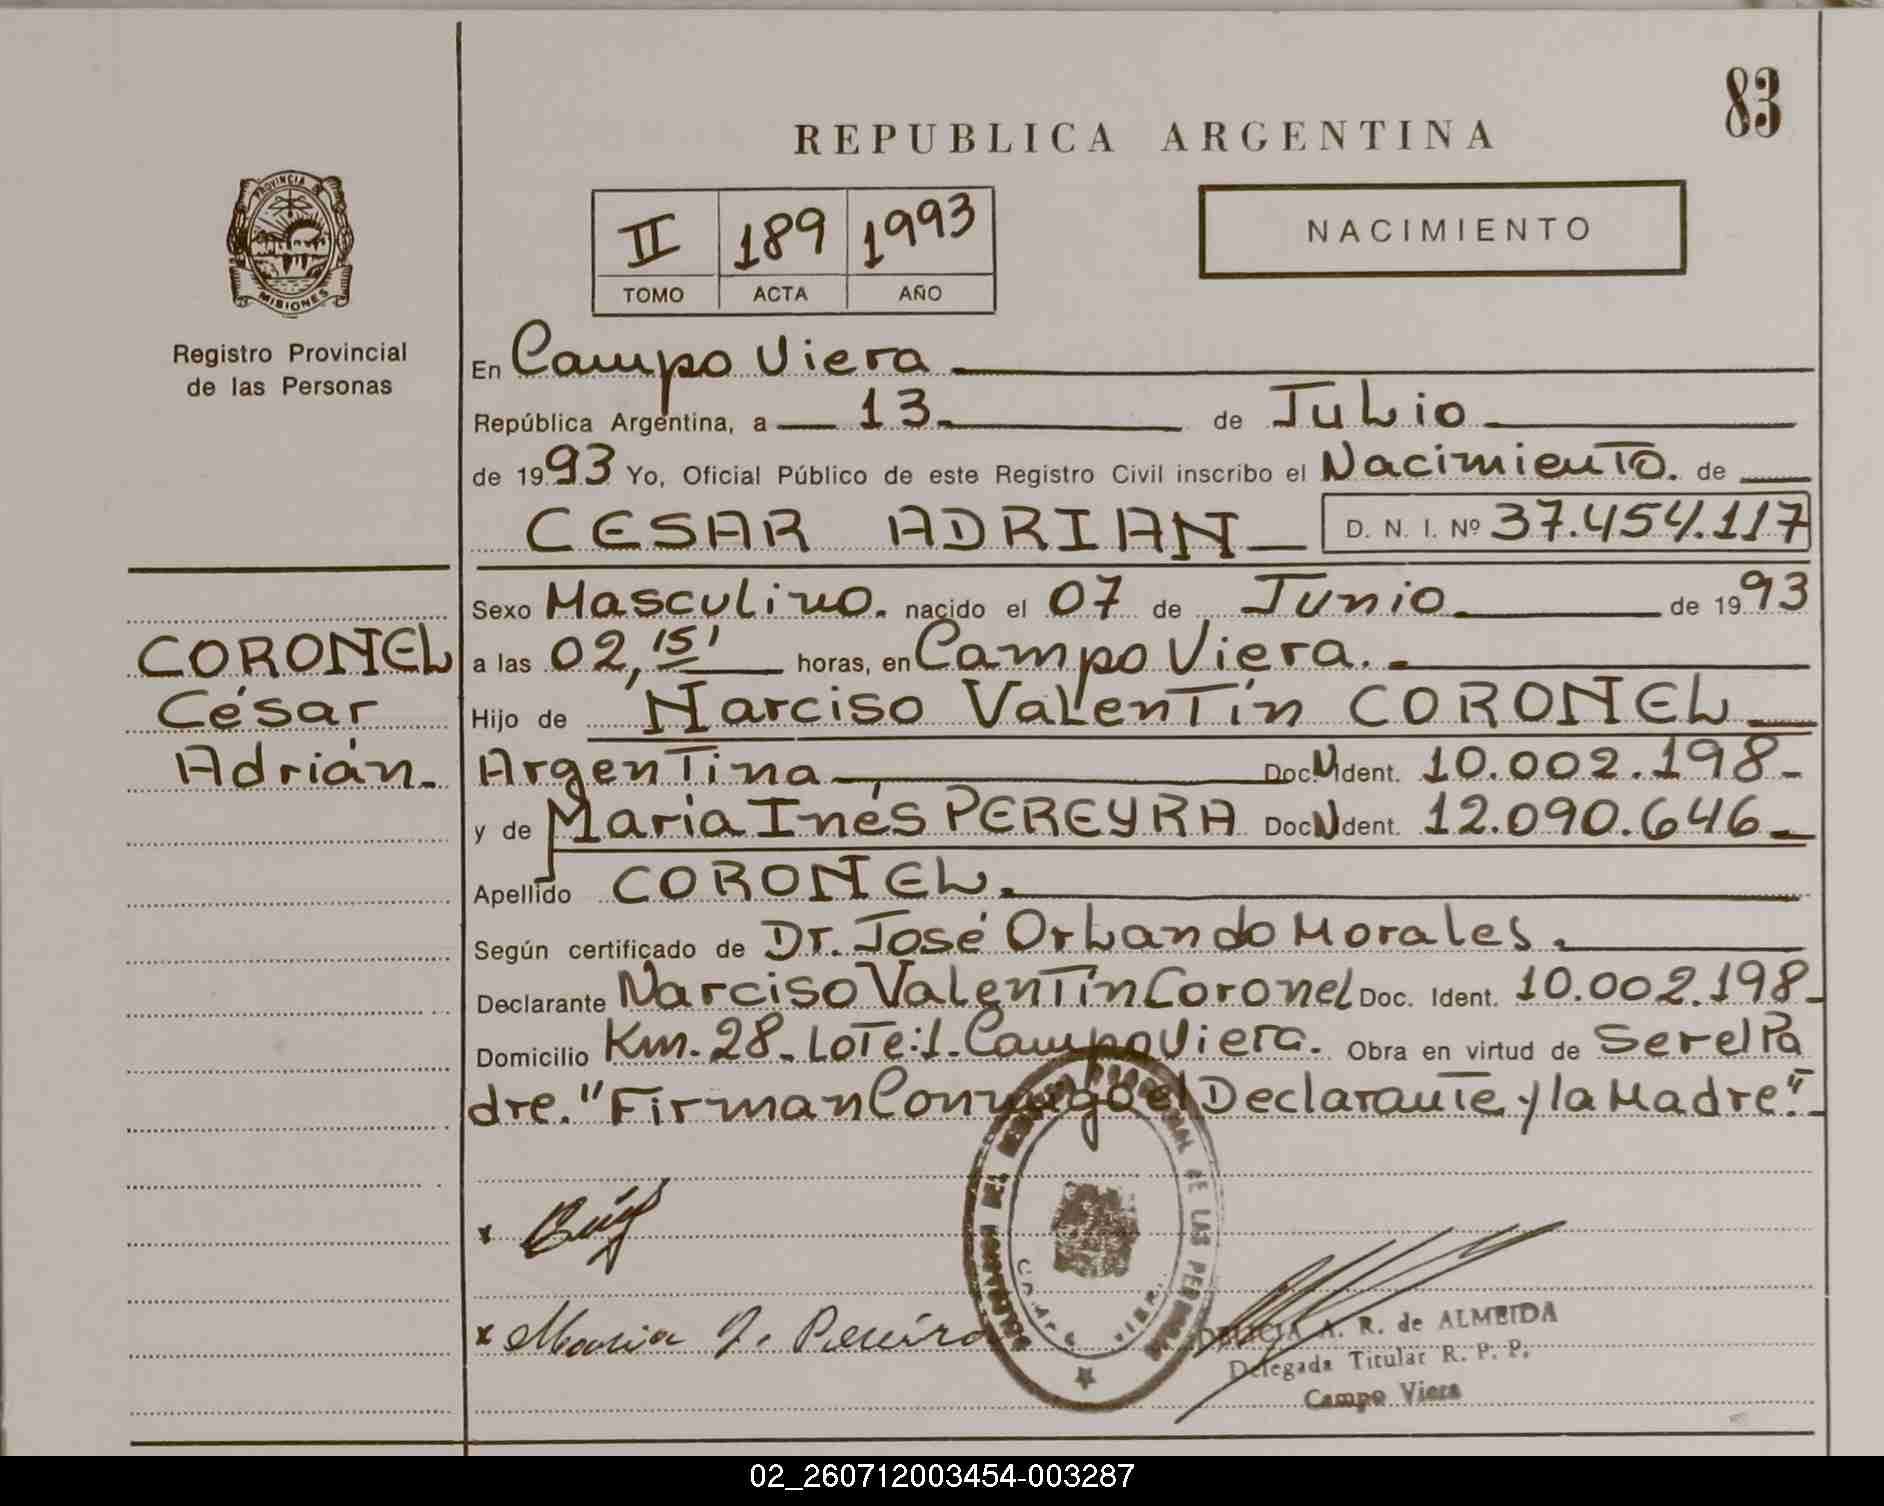 83
REPUBLICA ARGENTINA
PROVINCIA DE
MISIONES
Registro Provincial
de las Personas
II 189 1993
TOMO ACTA AÑO
NACIMIENTO
En Campo Viera
República Argentina, a 13. de Julio
de 1993 Yo, Oficial Público de este Registro Civil inscribo el Nacimiento. de
CESAR ADRIAN D. N. I. Nº 37.454.117
Sexo Masculino. nacido el 07 de Junio de 1993
CORONEL
César
Adrián.
a las 02,15' horas, en Campo Viera.
Hijo de Narciso Valentín CORONEL
Argentina Doc. Ident. 10.002.198
y de María Inés PEREYRA Doc. Ident. 12.090.646
Apellido CORONEL.
Según certificado de Dr. José Orlando Morales.
Declarante Narciso Valentín Coronel Doc. Ident. 10.002.198
Domicilio Km. 28 Lote:1. Campo Viera. Obra en virtud de Ser el Pa
dre. "Firman Conmigo el Declarante y la Madre."
x
x Maria I.
DE LAS
A. R. de ALMEIDA
Delegada Titular R. P. P.
Campo Viera
02_260712003454-003287